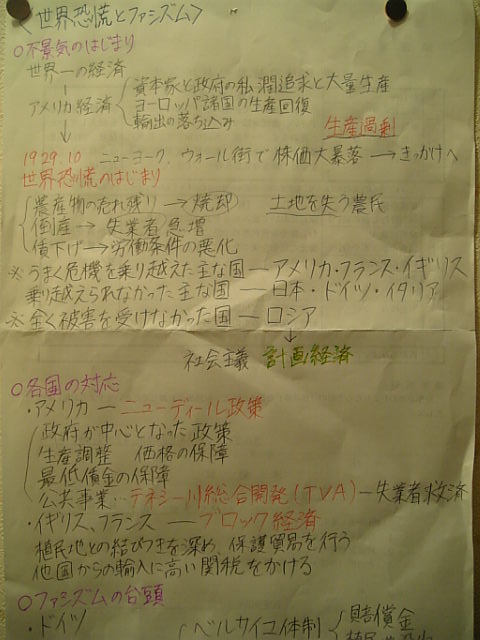 <世界恐慌とファシズム>
○不景気のはじまり
世界一の経済
↓
アメリカ経済
資本家と政府の私潤追求と大量生産
ヨーロッパ諸国の生産回復
輸出の落ち込み
↓
生産過剰
1929.10 ニューヨーク、ウォール街で株価大暴落→きっかけへ
世界恐慌のはじまり
農産物の売れ残り→焼却 土地を失う農民
倒産→失業者急増
債下げ→労働条件の悪化
※うまく危機を乗り越えた主な国―アメリカ・フランス・イギリス
乗り越えられなかった主な国―日本・ドイツ・イタリア
※全く被害を受けなかった国―ロシア
↓
社会主義 計画経済
○各国の対応
・アメリカ―ニューディール政策
政府が中心となった政策
生産調整 価格の保障
最低債金の保障
公共事業…テネシー川総合開発(TVA)―失業者救済
・イギリス、フランス―ブロック経済
植民地との結びつきを深め、保護貿易を行う
他国からの輸入に高い関税をかける
○ファシズムの台頭
・ドイツ
ベルサイユ体制
賠償金